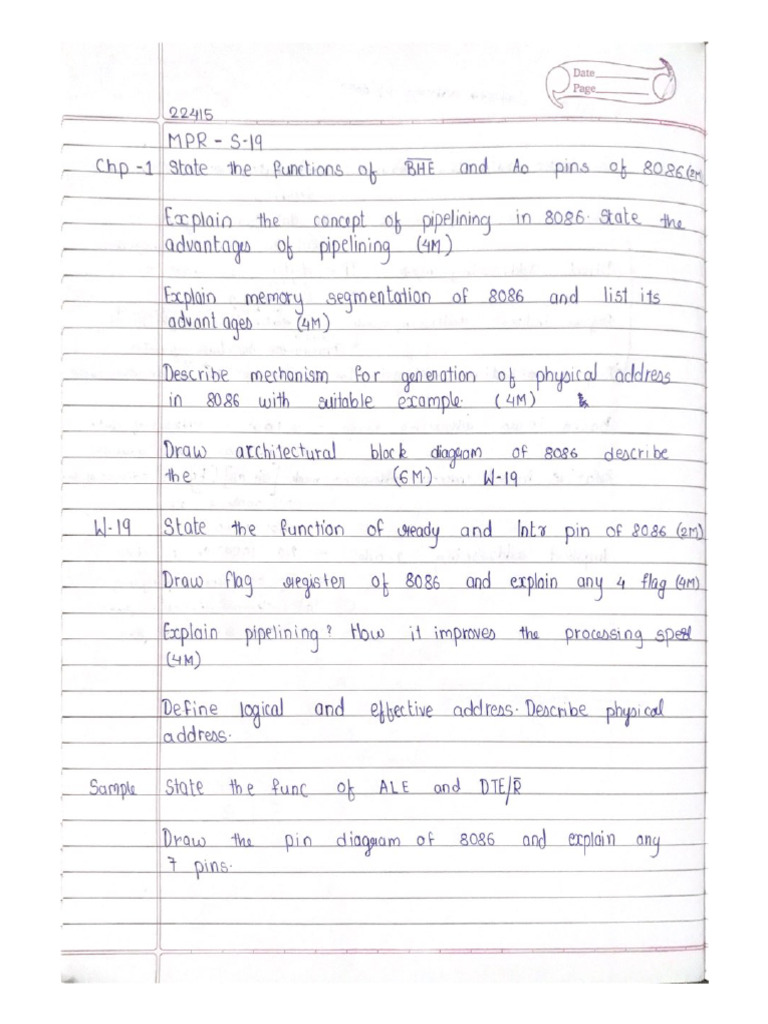 Date
Page
22415
MPR - S-19
Chp -1 State the functions of B̅H̅E̅ and A0 pins of 8086 (2M
Explain the concept of pipelining in 8086. State the
advantages of pipelining (4M)
Explain memory segmentation of 8086 and list its
advantages (4M)
Describe mechanism for generation of physical address
in 8086 with suitable example. (4M)
Draw architectural block diagram of 8086 describe
the (6M) W-19
W-19 State the function of ready and Intr pin of 8086 (2M)
Draw flag register of 8086 and explain any 4 flag (4M)
Explain pipelining? How it improves the processing speed
(4M)
Define logical and effective address. Describe physical
address.
Sample State the func of ALE and DTE/R̅
Draw the pin diagram of 8086 and explain any
7 pins.